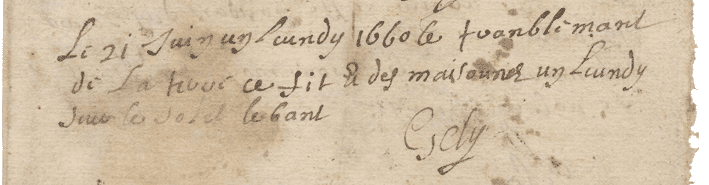 Le 21 Juin un Lundy 1660 le tranblemant
de La tere ce fit & des maisonnes un Lundy
sur le solel lebant
Gely